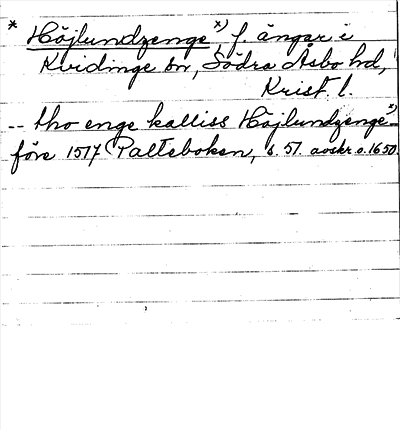 * Höjlundzenge x), f. ängar i
Kvidinge sn, Södra Åsbo hd,
Krist. l.
-- tho enge kalliss Höjlundzenge x)--
före 1517 Palteboken, s. 57. avskr. o. 1650.